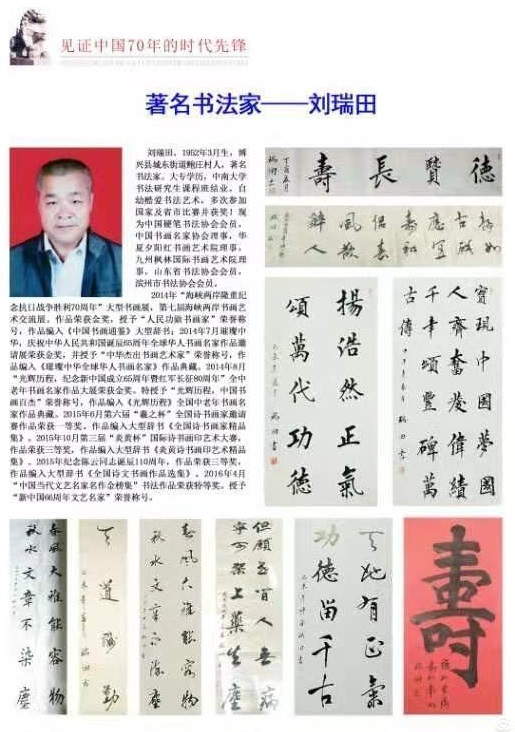 见证中国70年的时代先锋
著名书法家——刘瑞田
刘瑞田，1952年3月生，博
兴县城东街道鲍庄村人，著名
书法家。大专学历，中南大学
书法研究生课程班结业。自
幼酷爱书法艺术，多次参加
国家及省市比赛并获奖！现
为中国硬笔书法协会会员，
中国书画名家协会理事，华
夏夕阳红书画艺术院理事，
九州枫林国际书画艺术院理
事，山东省书法协会会员，
滨州市书法协会会员。
2014年“海峡两岸隆重纪
念抗日战争胜利70周年”大型书画展，第七届海峡两岸书画艺
术交流展，作品荣获金奖，授予“人民功勋书画家”荣誉称
号，作品编入《中国书画通鉴》大型辞书；2014年7月璀璨中
华，庆祝中华人民共和国诞辰65周年全球华人书画名家作品邀
请展荣获金奖，并授予“中华杰出书画艺术家”荣誉称号，作
品编入《璀璨中华全球华人书画名家》作品典藏。2014年8月
“光辉历程，纪念新中国成立65周年暨红军长征80周年”全中
老年书画名家作品大展荣获金奖。特授予“光辉历程，中国书
画百杰”荣誉称号，作品编入《光辉历程》全国中老年书画名
家作品典藏。2015年6月第六届“羲之杯”全国诗书画家邀请
赛作品荣获一等奖，作品编入大型辞书《全国诗书画家精品
集》。2015年10月第三届“炎黄杯”国际诗书画印艺术大赛，
作品荣获三等奖，作品编入大型辞书《炎黄诗书画印艺术精品
集》。2015年纪念陈云同志诞辰110周年，作品荣获三等奖，
作品编入大型辞书《全国诗文书画作品选集》。2016年4月
“中国当代文艺名家名作金榜集”书法作品荣获特等奖。授予
“新中国66周年文艺名家”荣誉称号。
德賢長壽
寶現中國夢國
人齊奮發偉績
千幸頌豐碑萬
古傳
揚浩然正氣
頌萬代功德
春風大雅能容物
秋水文章不染塵
天道酬勤
春風大雅能容物
秋水文章不染塵
但願世間人無病
寧可架上藥生塵
天地有正氣
功德留千古
壽